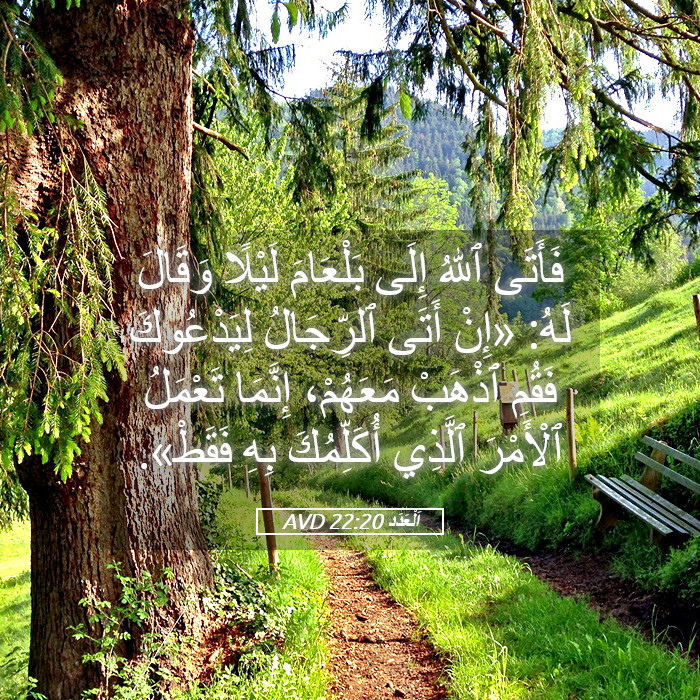 فَأَتَى ٱللهُ إِلَى بَلْعَامَ لَيْلًا وَقَالَ
لَهُ: «إِنْ أَتَى ٱلرِّجَالُ لِيَدْعُوكَ
فَقُمِ ٱذْهَبْ مَعَهُمْ، إِنَّمَا تَعْمَلُ
ٱلْأَمْرَ ٱلَّذِي أُكَلِّمُكَ بِهِ فَقَطْ».
اَلْعَدَد 22:20 AVD